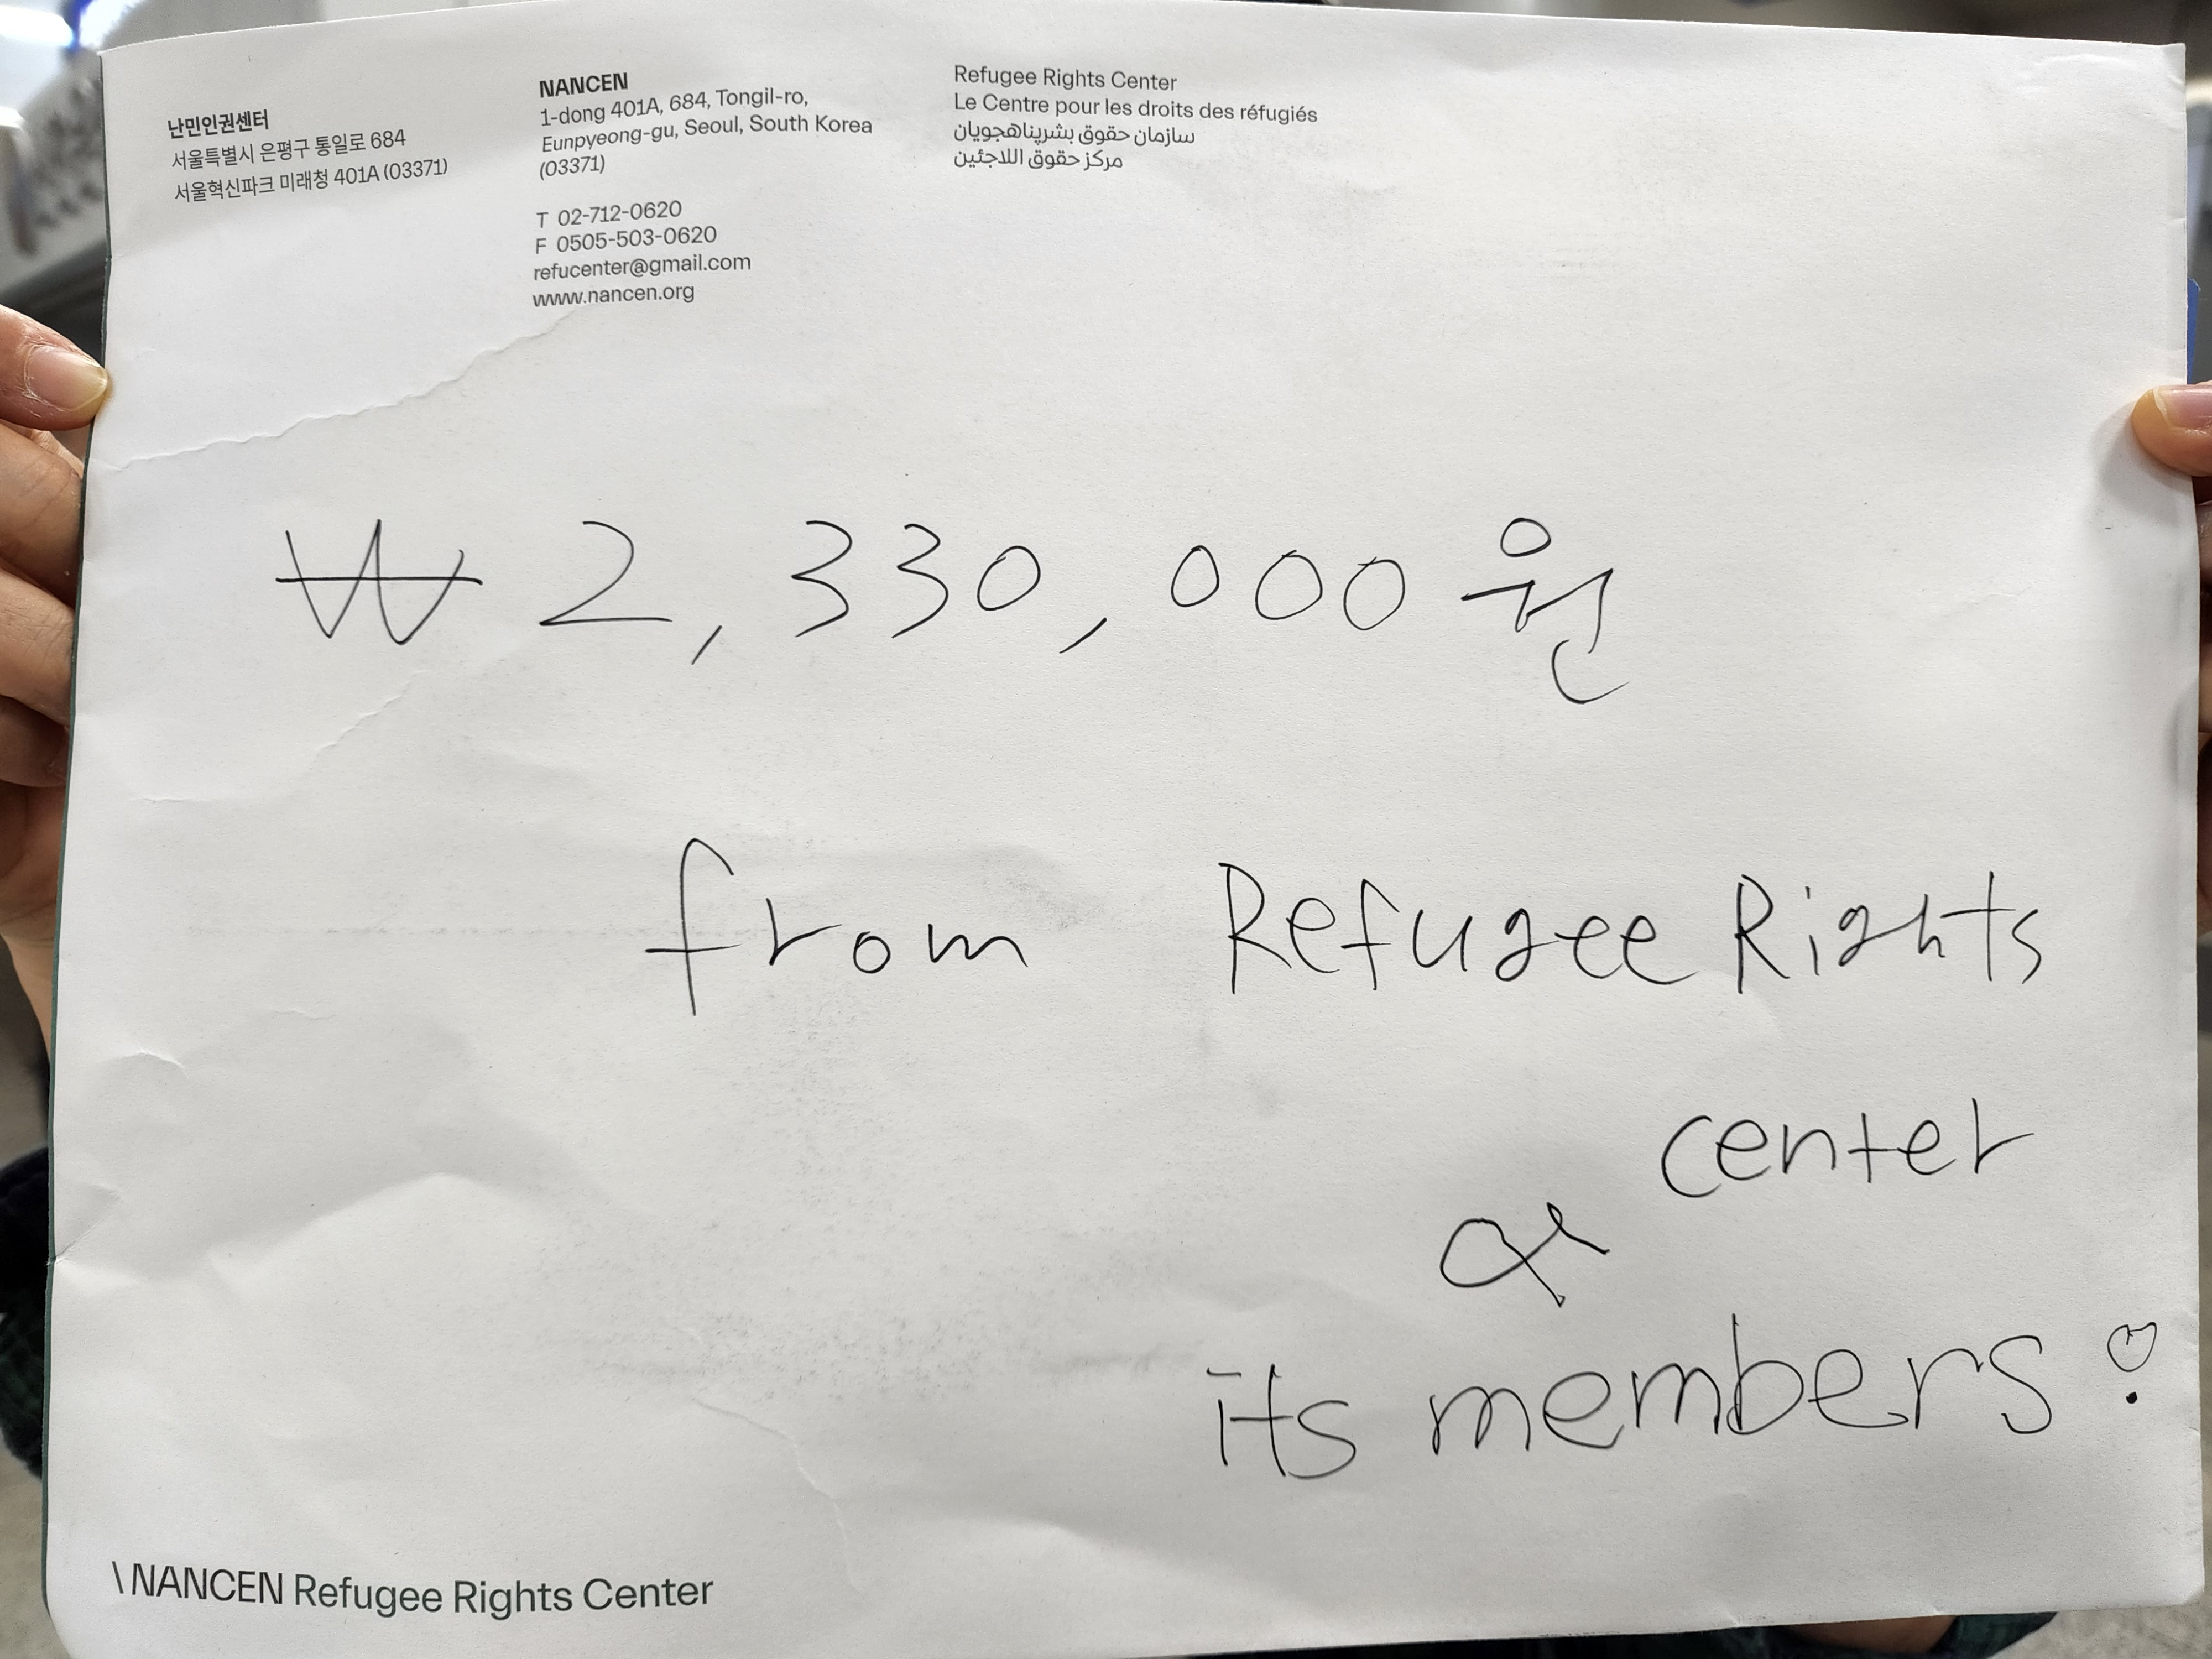 난민인권센터
서울특별시 은평구 통일로 684
서울혁신파크 미래청 401A (03371)
NANCEN
1-dong 401A, 684, Tongil-ro,
Eunpyeong-gu, Seoul, South Korea
(03371)
T 02-712-0620
F 0505-503-0620
refucenter@gmail.com
www.nancen.org
Refugee Rights Center
Le Centre pour les droits des réfugiés
سازمان حقوق بشرپناهجویان
مركز حقوق اللاجئين
₩ 2,330,000원
from Refugee Rights
center
&
its members
\ NANCEN Refugee Rights Center